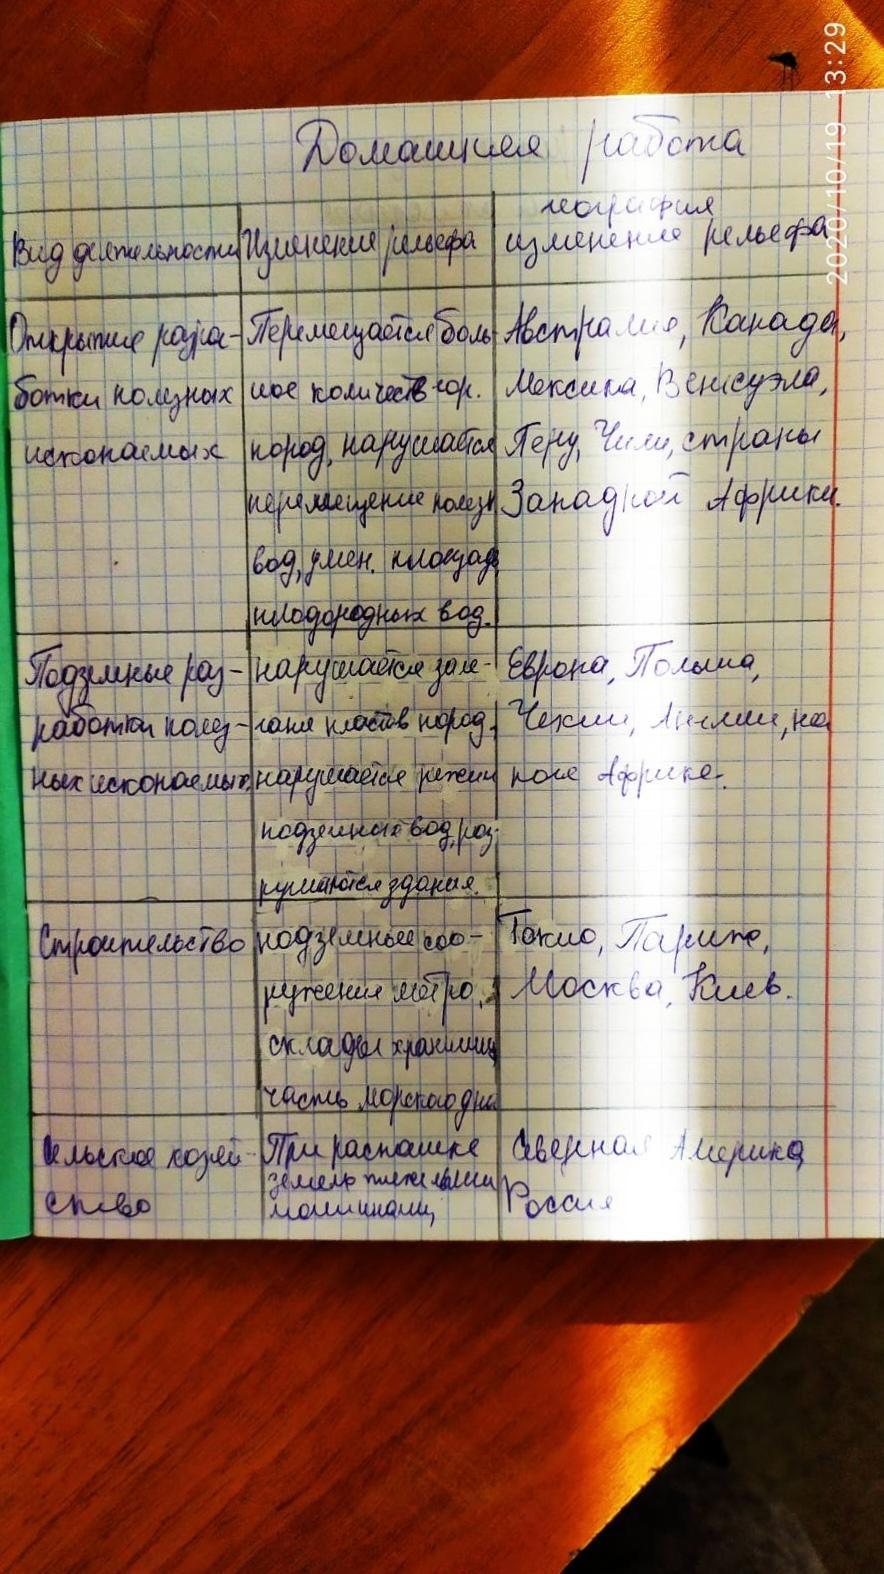 Домашняя работа
Вид деятельности
Изменения рельефа
география
изменение рельефа
Открытые разра-
ботки полезных
ископаемых
Перемещается боль
шое количеств гор.
пород, нарушается
перемещение полезн
вод, умен. площадь
плодородных вод.
Австралия, Канада,
Мексика, Венесуэла,
Перу, Чили, страны
Западной Африки.
Подземные раз-
работки полез-
ных ископаемых
нарушается зале-
гания пластов пород,
нарушается режим
подземных вод, раз-
рушаются здания.
Европа, Польша,
Чехии, Англии, на
юге Африке.
Строительство
подземные соо-
ружения метро,
склады хранилищ
часть морского дна
Токио, Париж,
Москва, Киев.
Сельское хозяй-
ство
При распашке
земель тяжелыми
машинами,
Северная Америка,
Россия
2020/10/19 13:29